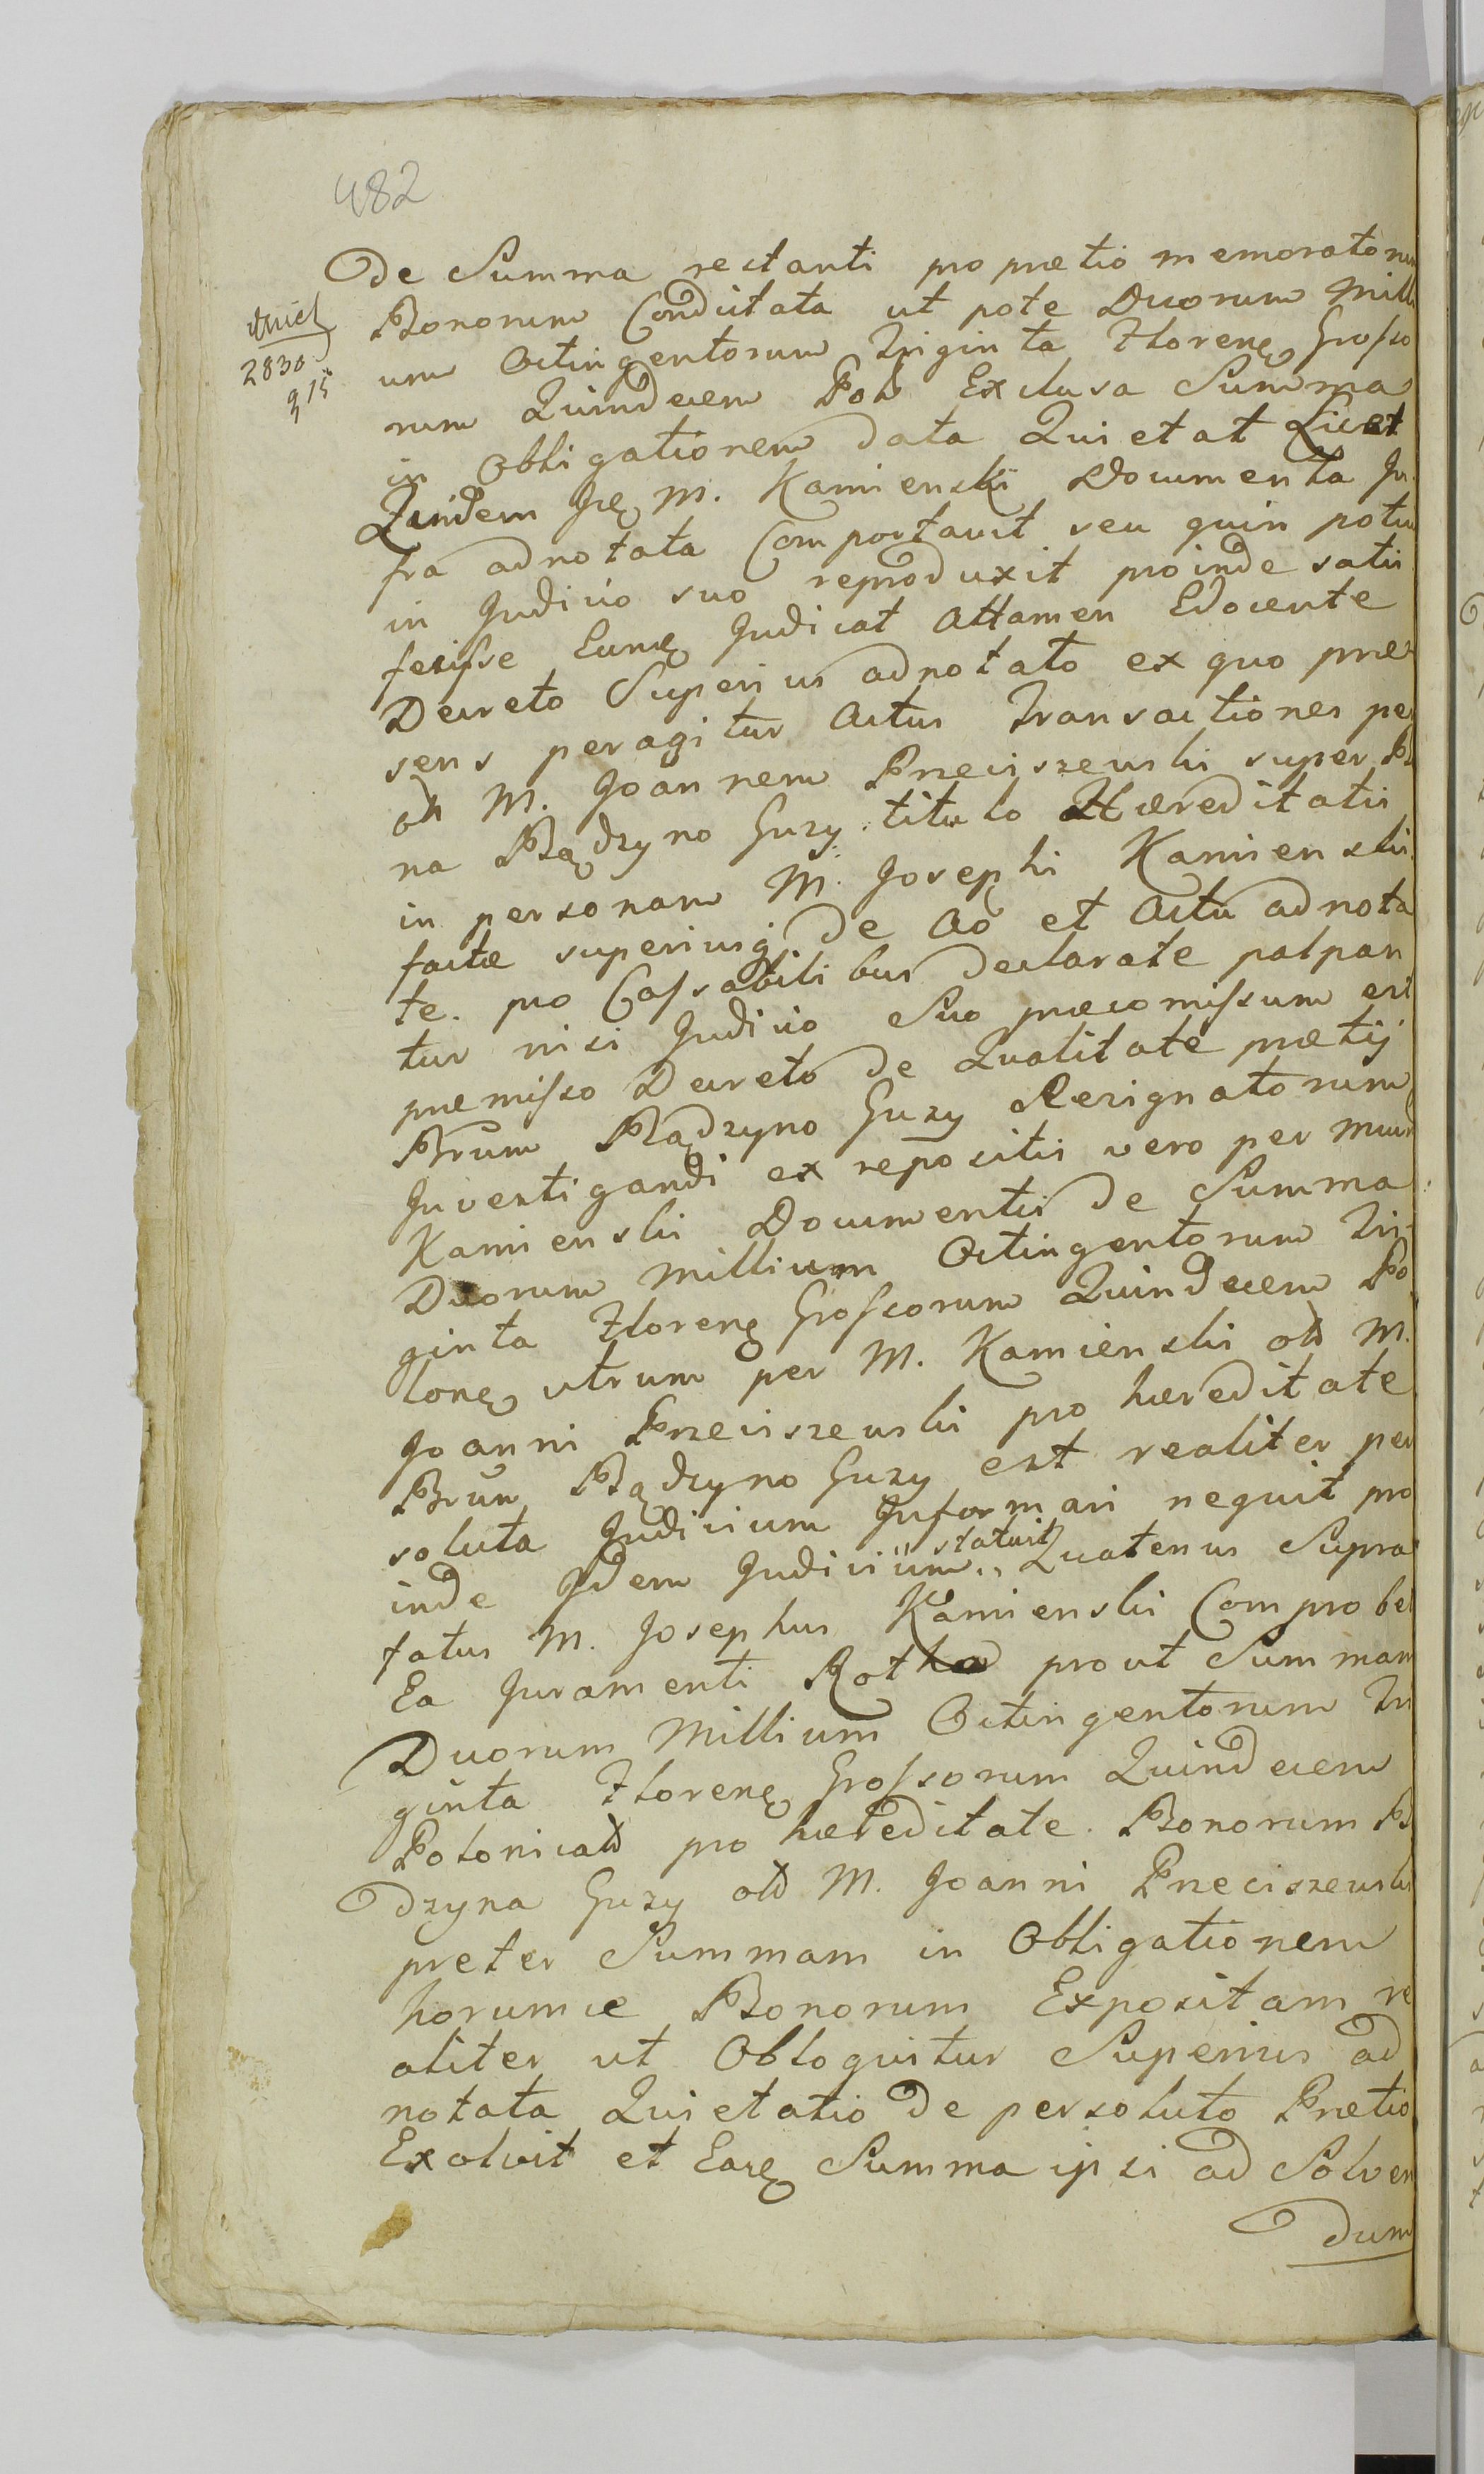 482
De Summa restanti pro prætio memoratorum
Bonorum Condictata ut pote Duorum Milli
2830
g 15
um Octingentorum Triginta Florenę Grosso
rum Quindecem Pol Exclusa Summa
in Obligationem data Quietat Licet
Quidem Gę M. Kamienski Documenta In
fra adnotata Comportavit seu quin potiu
in Judicio suo reproduxit proinde satis
fecisse Eumę Judicat Attamen Edocente
Decreto Superius adnotato ex quo præ
sens peragitur Actus Transactiones per
old M. Joannem Przeciszewski super B
na Bądzyno Guzy titulo Hæreditatis
in personam M. Josephi Kamienski
factæ superiusq. de Ao et Actu adnota
te. pro Cassabilibus declarate palpan
tur nisi Judicio Suo præcomissum est
præmisso Decreto de Qualitate prætij
Brum Bądzyno Guzy Resignatorum
Investigandi ex repositis vero per
Kamienski Documentis de Summa
Duorum Millium Octingentorum Tri-
ginta Florenę Grossorum Quindecem Po
lonę utrum per M. Kamienski old M.
Joanni Przeciszewski pro hæreditate
Brum Bądzyno Guzy est realiter per
soluta Judicium Informari nequit pro
inde Idem Judicium statuit Quatenus Supra
fatus M. Josephus Kamienski Comprobet
Ea Juramenti Rotha prout Summam
Duorum Millium Octingentorum Tri
ginta Florenę Grossorum Quindecem
Polonicad pro hæreditate Bonorum B
dzyna Guzy old M. Joanni Przeciszewski
preter Summam in Obligationem
horumce Bonorum Expositam re
aliter ut Obloquitur Superius ad
notata Quietatio de persoluto Prætio
Exolvit et Earę Summa ipsi ad Solven
dum